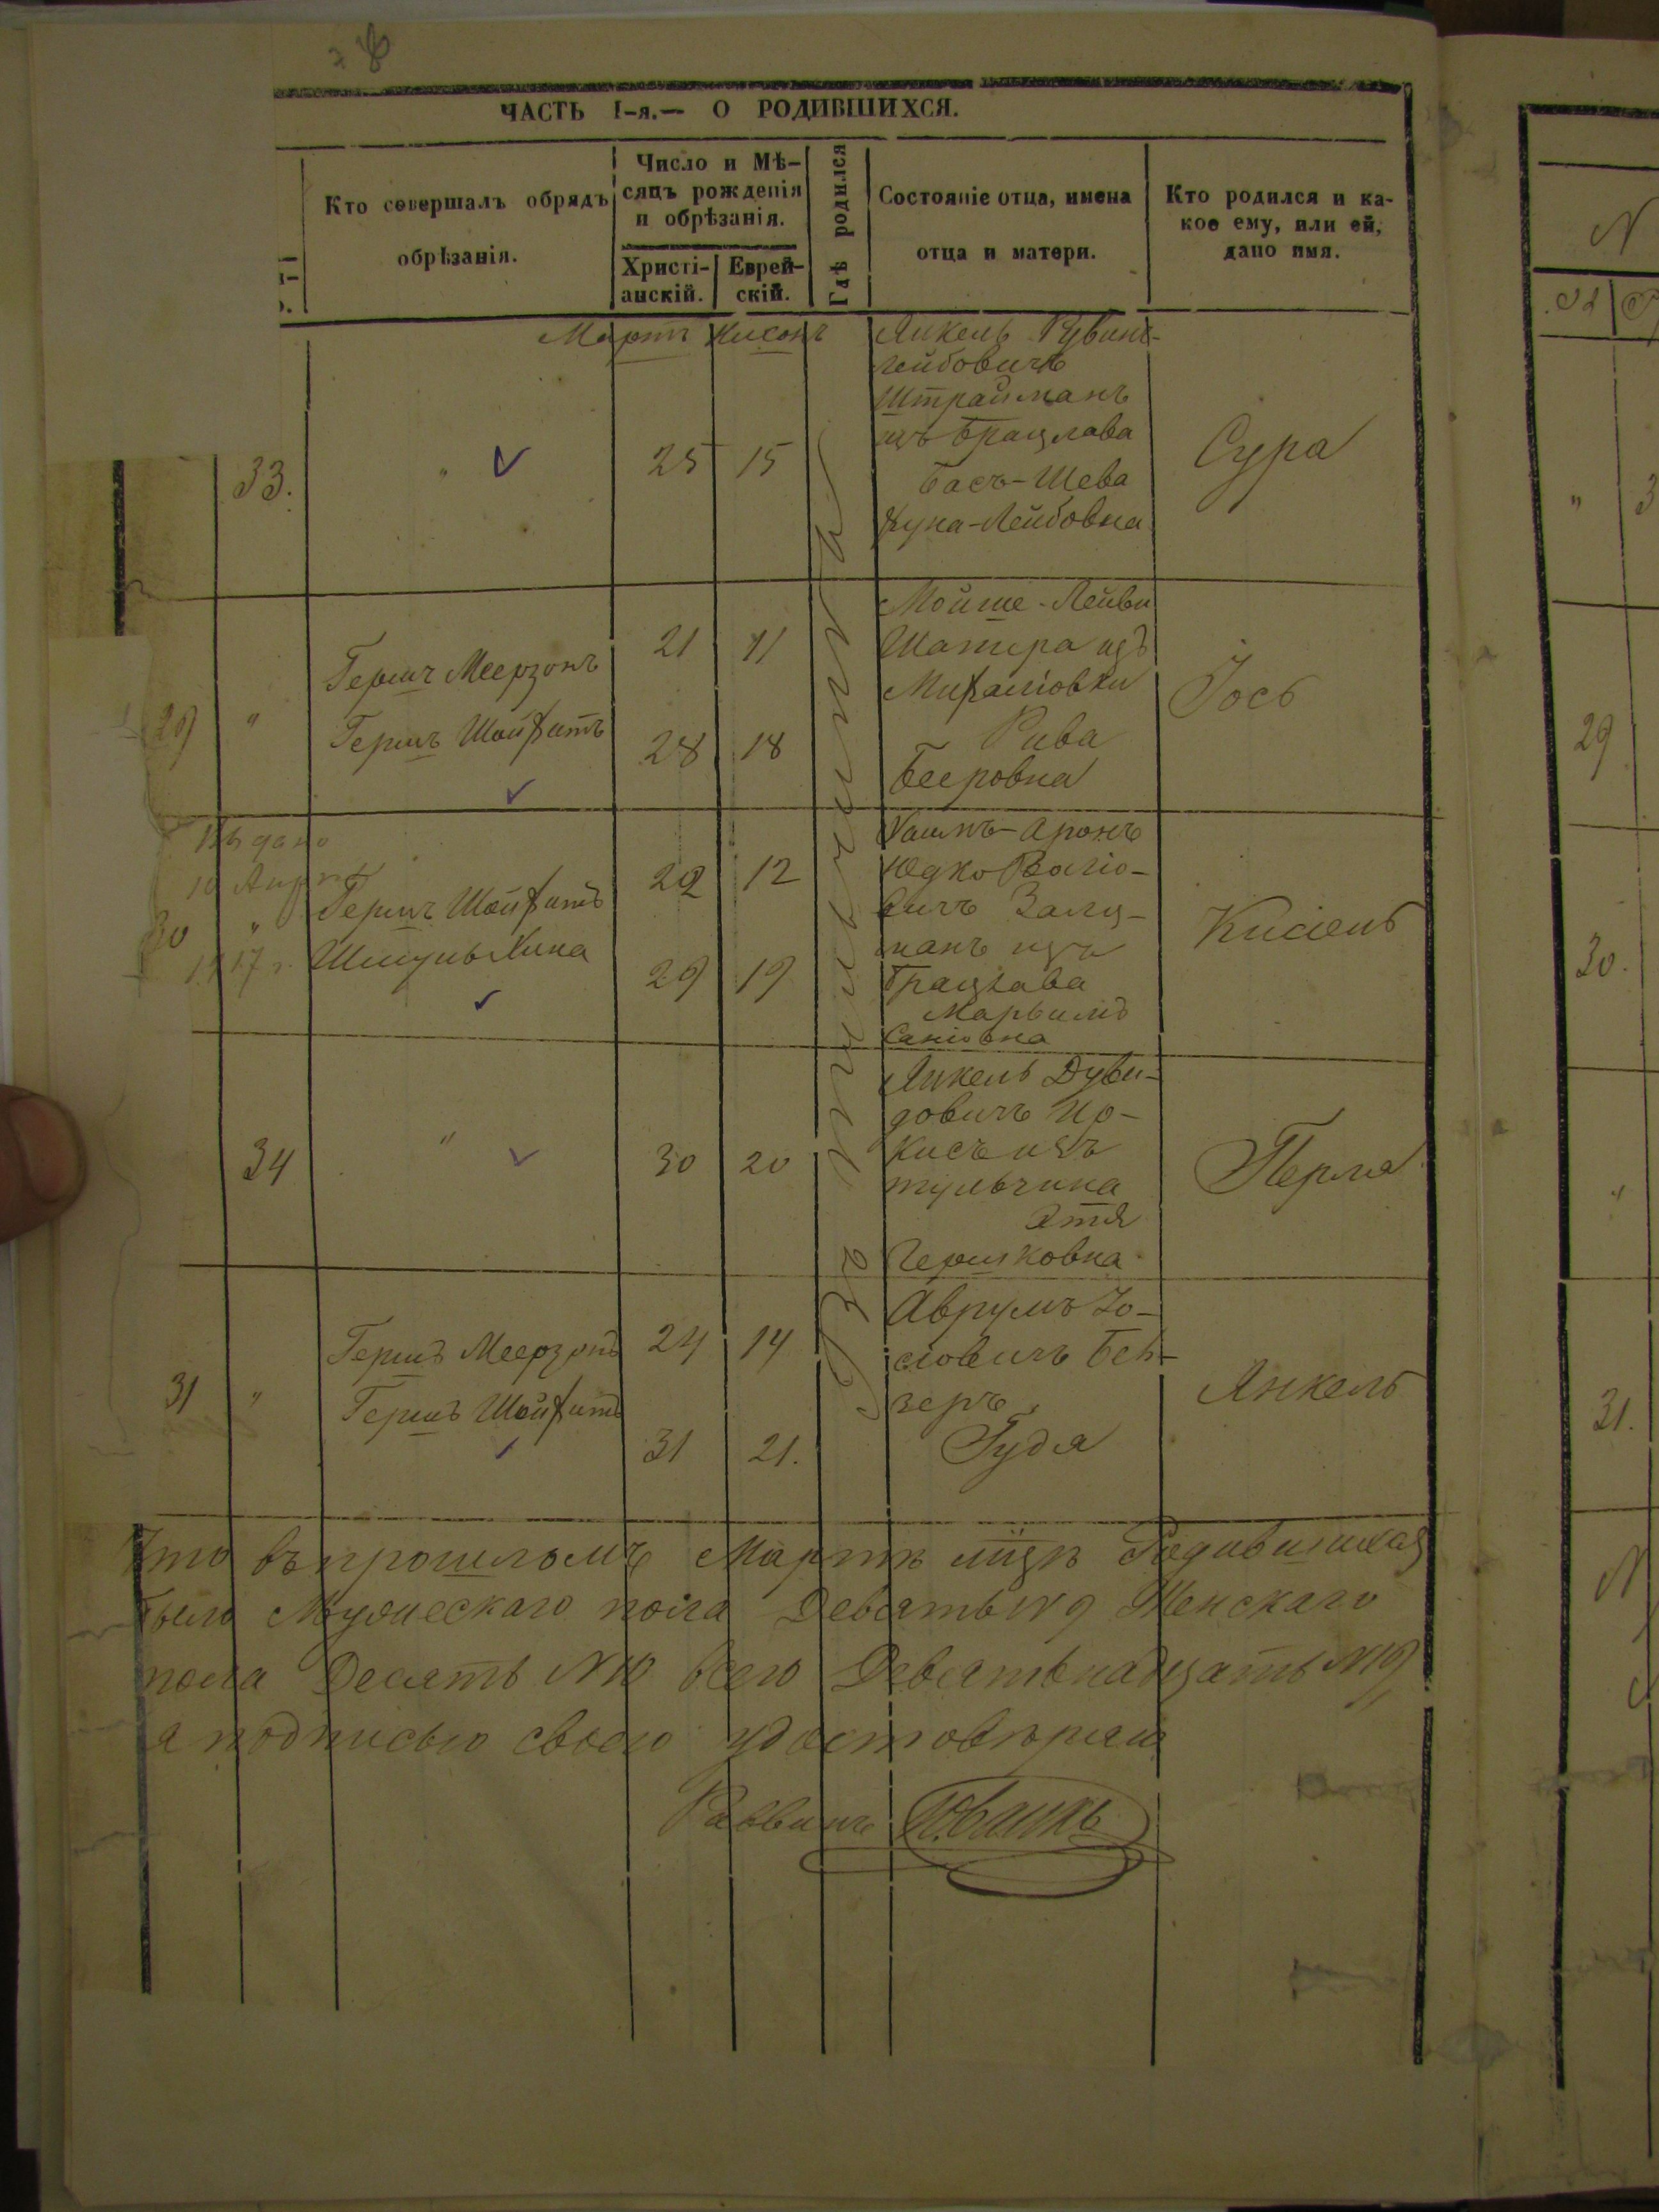 ЧАСТЬ I-я.— О РОДИВШИХСЯ.
Кто совершалъ обрядъ
обрѣзанія.
Число и Мѣ-
сяцъ рожденія
и обрѣзанія.
Христі-
анскій.
Еврей-
скій.
Гдѣ родился
Состояніе отца, имена
отца и матери.
Кто родился и ка-
кое ему, или ей,
дано имя.
Мартъ Нисонъ
33.
"
25 15
Янкель Рувинъ-
Лейбовичъ
Штрайманъ
изъ Брацлава
Бася-Шева
Нуна-Лейбовна
Сура
29 "
Гершъ Меерзонъ
Гершъ Шойхитъ
21 11
28 18
Мойше-Лейви
Шапира изъ
Михайловки
Рива
Бееровна
Іось
Выдано
10 Апр
1917 г.
30 "
Гершъ Шойхитъ
Шмуль Хина
22 12
29 19
Хаимъ-Аронъ
Юдко
вичъ Залц-
манъ изъ
Брацлава
Марьимъ
Кисель
34
"
30 20
Янкель Дуви-
довичъ Ир-
кисъ изъ
тульчина
Этя
Гершковна
Перля
31 "
Гершъ Меерзонъ
Гершъ Шойхитъ
24 14
31 21.
Аврумъ Іо-
сіовичъ Бен-
зеръ
Гудя
Янкель
Въ тульчинѣ
Что въ прошломъ Мартѣ м-цѣ Родившихся
было Мужескаго пола Девять №9 Женскаго
пола Десять №10 всего Девятьнадцать №19
а подписью своею удостовѣряю
Раввинъ
N
29
30.
"
31.
N